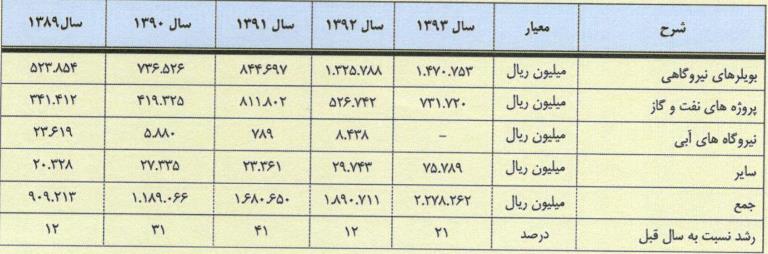 شرح معیار سال ۱۳۹۳ سال ۱۳۹۲ سال ۱۳۹۱ سال ۱۳۹۰ سال۱۳۸۹
بویلرهای نیروگاهی میلیون ریال ۱.۴۷۰.۷۵۳ ۱.۳۲۵.۷۸۸ ۸۴۴.۶۹۷ ۷۳۶.۵۲۶ ۵۲۳.۸۵۴
پروژه های نفت و گاز میلیون ریال ۷۳۱.۷۲۰ ۵۲۶.۷۴۲ ۸۱۱.۸۰۲ ۴۱۹.۳۲۵ ۳۴۱.۴۱۲
نیروگاه های آبی میلیون ریال - ۸.۴۳۸ ۷۸۹ ۵.۸۸۰ ۲۳.۶۱۹
سایر میلیون ریال ۷۵.۷۸۹ ۲۹.۷۴۳ ۲۳.۳۶۱ ۲۷.۳۳۵ ۲۰.۳۲۸
جمع میلیون ریال ۲.۲۷۸.۲۶۲ ۱.۸۹۰.۷۱۱ ۱.۶۸۰.۶۵۰ ۱.۱۸۹.۰۶۶ ۹۰۹.۲۱۳
رشد نسبت به سال قبل درصد ۲۱ ۱۲ ۴۱ ۳۱ ۱۲